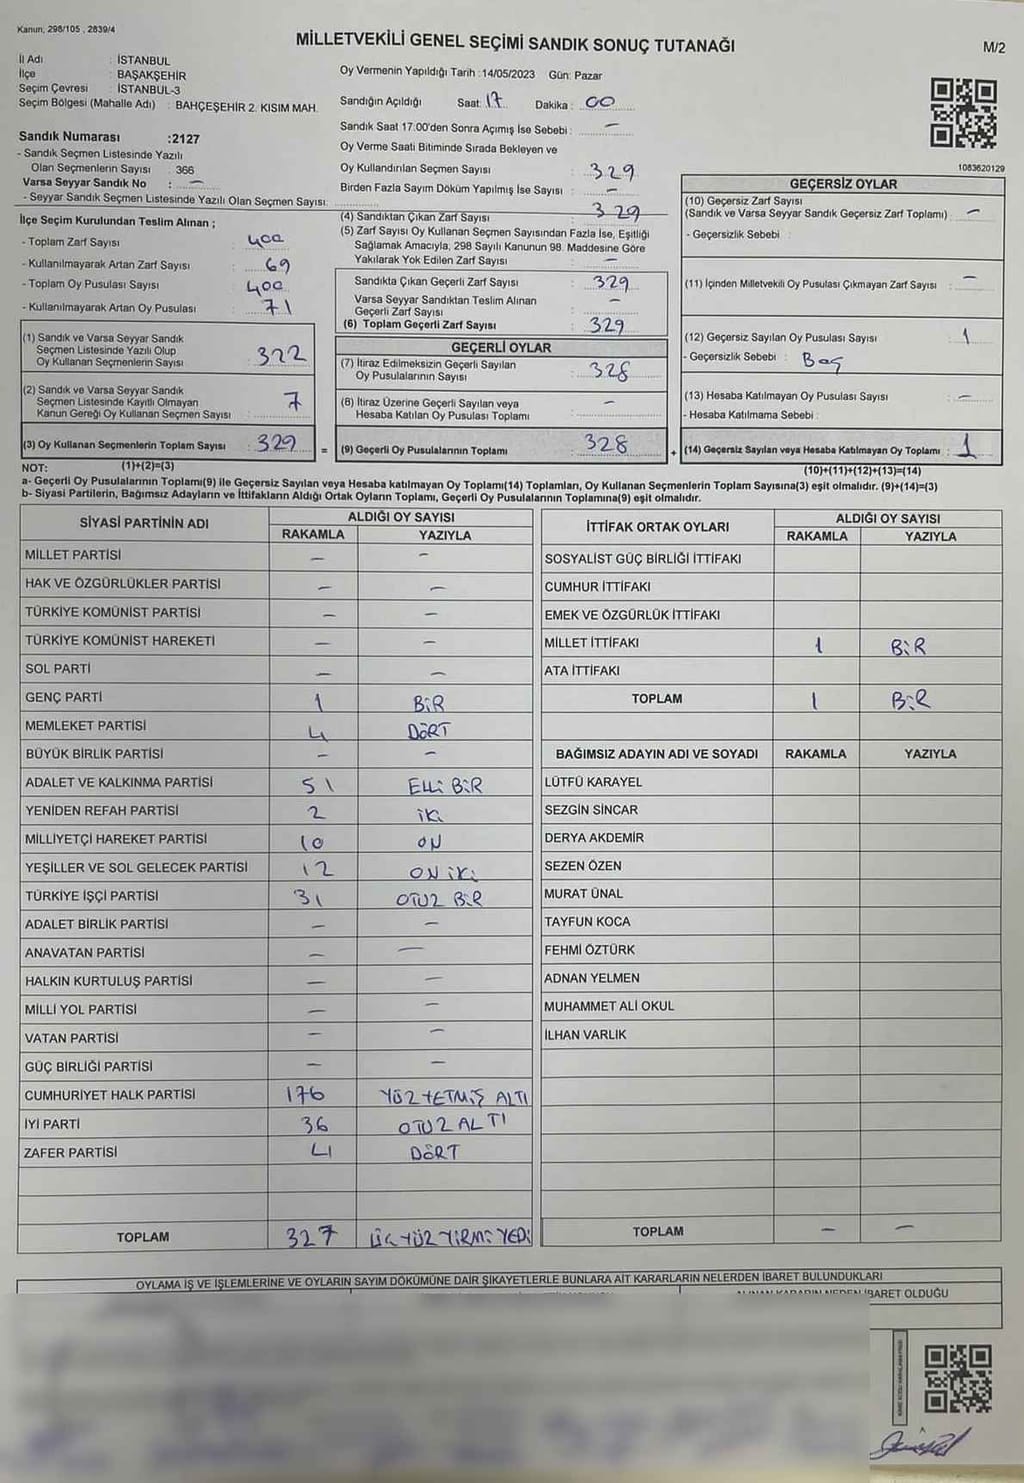 Kanun, 298/105 , 2839/4
MİLLETVEKİLİ GENEL SEÇİMİ SANDIK SONUÇ TUTANAĞI
M/2
İl Adı : İSTANBUL
İlçe : BAŞAKŞEHİR
Seçim Çevresi : İSTANBUL-3
Seçim Bölgesi (Mahalle Adı) : BAHÇEŞEHİR 2. KISIM MAH.
Sandık Numarası :2127
- Sandık Seçmen Listesinde Yazılı
Olan Seçmenlerin Sayısı : 366
Varsa Seyyar Sandık No : —
- Seyyar Sandık Seçmen Listesinde Yazılı Olan Seçmen Sayısı:
İlçe Seçim Kurulundan Teslim Alınan ;
- Toplam Zarf Sayısı : 400
- Kullanılmayarak Artan Zarf Sayısı : 69
- Toplam Oy Pusulası Sayısı : 400
- Kullanılmayarak Artan Oy Pusulası : 71
(1) Sandık ve Varsa Seyyar Sandık
Seçmen Listesinde Yazılı Olup
Oy Kullanan Seçmenlerin Sayısı : 322
(2) Sandık ve Varsa Seyyar Sandık
Seçmen Listesinde Kayıtlı Olmayan
Kanun Gereği Oy Kullanan Seçmen Sayısı : 7
(3) Oy Kullanan Seçmenlerin Toplam Sayısı : 329
(1)+(2)=(3)
Oy Vermenin Yapıldığı Tarih :14/05/2023 Gün: Pazar
Sandığın Açıldığı Saat: 17 Dakika : 00
Sandık Saat 17:00'den Sonra Açımış İse Sebebi : —
Oy Verme Saati Bitiminde Sırada Bekleyen ve
Oy Kullandırılan Seçmen Sayısı : 329
Birden Fazla Sayım Döküm Yapılmış İse Sayısı : —
(4) Sandıktan Çıkan Zarf Sayısı : 329
(5) Zarf Sayısı Oy Kullanan Seçmen Sayısından Fazla İse, Eşitliği
Sağlamak Amacıyla, 298 Sayılı Kanunun 98. Maddesine Göre
Yakılarak Yok Edilen Zarf Sayısı : —
Sandıkta Çıkan Geçerli Zarf Sayısı : 329
Varsa Seyyar Sandıktan Teslim Alınan
Geçerli Zarf Sayısı : —
(6) Toplam Geçerli Zarf Sayısı : 329
GEÇERLİ OYLAR
(7) İtiraz Edilmeksizin Geçerli Sayılan
Oy Pusulalarının Sayısı : 328
(8) İtiraz Üzerine Geçerli Sayılan veya
Hesaba Katılan Oy Pusulası Toplamı : —
= (9) Geçerli Oy Pusulalarının Toplamı : 328
1083620129
GEÇERSİZ OYLAR
(10) Geçersiz Zarf Sayısı
(Sandık ve Varsa Seyyar Sandık Geçersiz Zarf Toplamı) : —
- Geçersizlik Sebebi :
(11) İçinden Milletvekili Oy Pusulası Çıkmayan Zarf Sayısı : —
(12) Geçersiz Sayılan Oy Pusulası Sayısı : 1
- Geçersizlik Sebebi : Boş
(13) Hesaba Katılmayan Oy Pusulası Sayısı : —
- Hesaba Katılmama Sebebi :
+ (14) Geçersiz Sayılan veya Hesaba Katılmayan Oy Toplamı : 1
(10)+(11)+(12)+(13)=(14)
NOT:
a- Geçerli Oy Pusulalarının Toplamı(9) ile Geçersiz Sayılan veya Hesaba katılmayan Oy Toplamı(14) Toplamları, Oy Kullanan Seçmenlerin Toplam Sayısına(3) eşit olmalıdır. (9)+(14)=(3)
b- Siyasi Partilerin, Bağımsız Adayların ve İttifakların Aldığı Ortak Oyların Toplamı, Geçerli Oy Pusulalarının Toplamına(9) eşit olmalıdır.
SİYASİ PARTİNİN ADI ALDIĞI OY SAYISI
RAKAMLA YAZIYLA
MİLLET PARTİSİ — —
HAK VE ÖZGÜRLÜKLER PARTİSİ — —
TÜRKİYE KOMÜNİST PARTİSİ — —
TÜRKİYE KOMÜNİST HAREKETİ — —
SOL PARTİ — —
GENÇ PARTİ 1 BİR
MEMLEKET PARTİSİ 4 DÖRT
BÜYÜK BİRLİK PARTİSİ — —
ADALET VE KALKINMA PARTİSİ 51 ELLİ BİR
YENİDEN REFAH PARTİSİ 2 İKİ
MİLLİYETÇİ HAREKET PARTİSİ 10 ON
YEŞİLLER VE SOL GELECEK PARTİSİ 12 ON İKİ
TÜRKİYE İŞÇİ PARTİSİ 31 OTUZ BİR
ADALET BİRLİK PARTİSİ — —
ANAVATAN PARTİSİ — —
HALKIN KURTULUŞ PARTİSİ — —
MİLLİ YOL PARTİSİ — —
VATAN PARTİSİ — —
GÜÇ BİRLİĞİ PARTİSİ — —
CUMHURİYET HALK PARTİSİ 176 YÜZ YETMİŞ ALTI
İYİ PARTİ 36 OTUZ ALTI
ZAFER PARTİSİ 4 DÖRT
TOPLAM 327 ÜÇ YÜZ YİRMİ YEDİ
İTTİFAK ORTAK OYLARI ALDIĞI OY SAYISI
RAKAMLA YAZIYLA
SOSYALİST GÜÇ BİRLİĞİ İTTİFAKI
CUMHUR İTTİFAKI
EMEK VE ÖZGÜRLÜK İTTİFAKI
MİLLET İTTİFAKI 1 BİR
ATA İTTİFAKI
TOPLAM 1 BİR
BAĞIMSIZ ADAYIN ADI VE SOYADI RAKAMLA YAZIYLA
LÜTFÜ KARAYEL
SEZGİN SİNCAR
DERYA AKDEMİR
SEZEN ÖZEN
MURAT ÜNAL
TAYFUN KOCA
FEHMİ ÖZTÜRK
ADNAN YELMEN
MUHAMMET ALİ OKUL
İLHAN VARLIK
TOPLAM — —
OYLAMA İŞ VE İŞLEMLERİNE VE OYLARIN SAYIM DÖKÜMÜNE DAİR ŞİKAYETLERLE BUNLARA AİT KARARLARIN NELERDEN İBARET BULUNDUKLARI
OLDUĞU